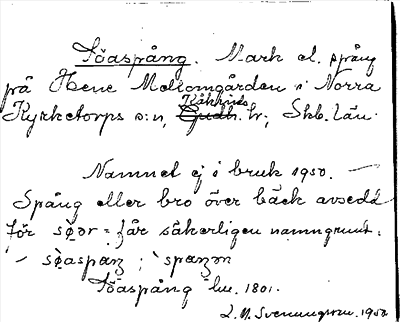 Töaspång. Mark el. spång
på Hene Mellomgården i Norra
Kåkinds
Kyrketorps s:n, Gudh. hr; Skb. län.
Namnet ej i bruk 1950. —
Spång eller bro över bäck avsedd
för = får säkerligen namngrund.
Töaspång hu. 1801.
1950